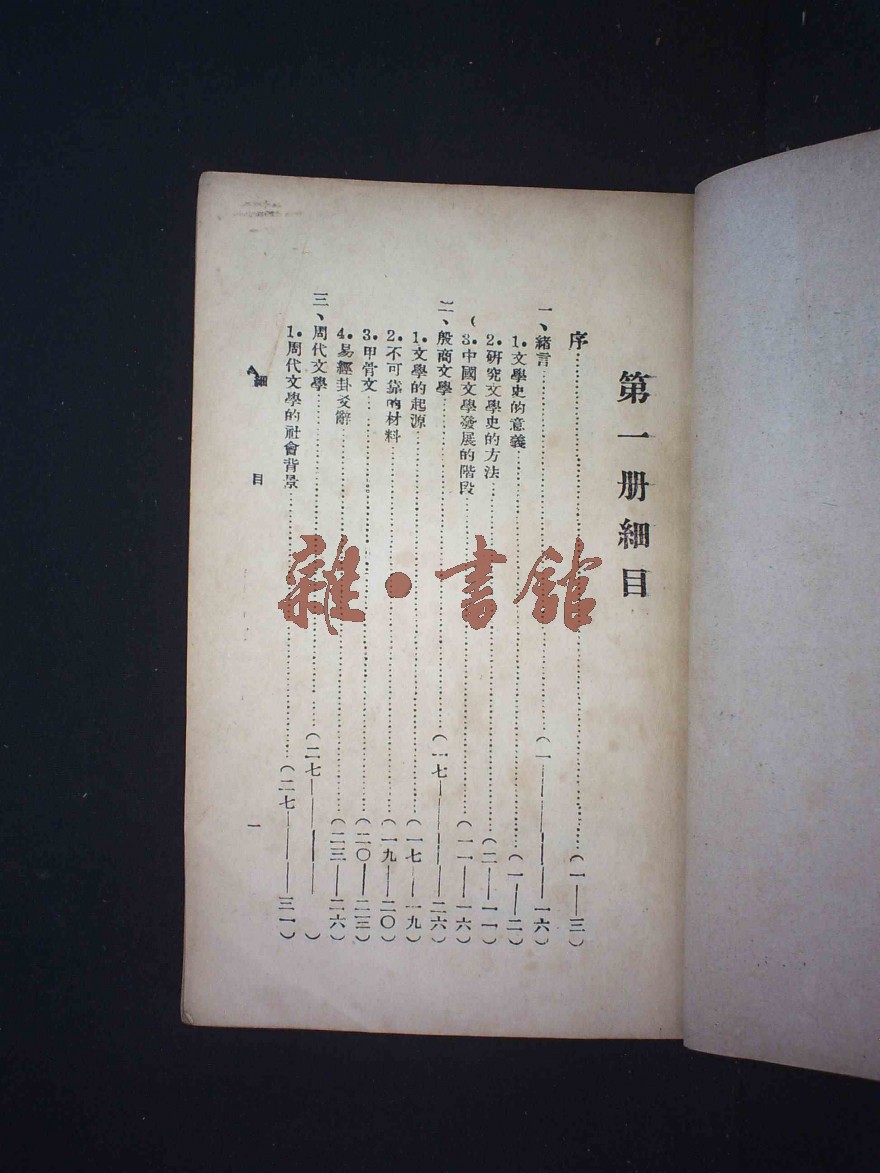 第一册細目
序……(一——三)
一、緒言……(一——一六)
1.文學史的意義……(一——二)
2.研究文學史的方法……(二——一一)
(3.中國文學發展的階段……(一一——一六)
二、殷商文學……(一七——二六)
1.文學的起源……(一七——一九)
2.不可靠的材料……(一九——二〇)
3.甲骨文……(二〇——二三)
4.易經卦爻辭……(二三——二六)
三、周代文學……(二七——)
1.周代文學的社會背景……(二七——三一)
細目
一
雜·書館